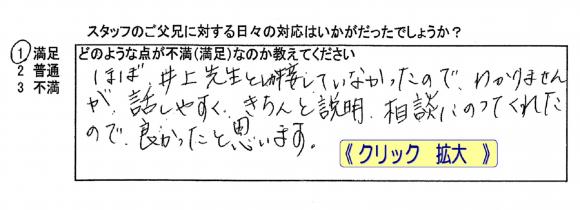 スタッフのご父兄に対する日々の対応はいかがだったでしょうか？
1 満足
2 普通
3 不満
どのような点が不満(満足)なのか教えてください
ほぼ、井上先生としか接していなかったので、わかりません
が、話しやすく、きちんと説明、相談にのってくれた
ので、良かったと思います。
《クリック 拡大 》